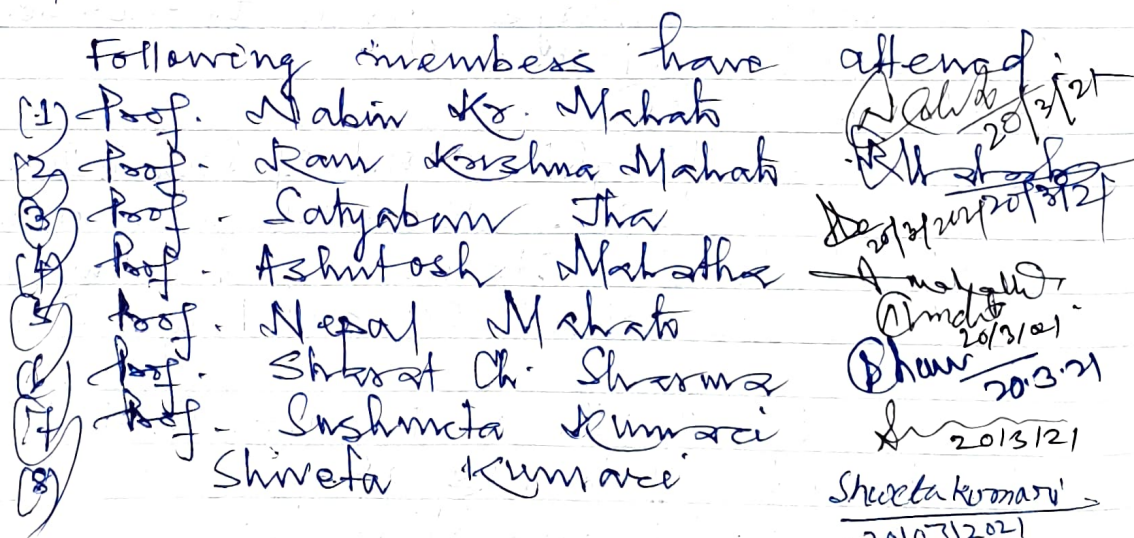 Following members have attend.
(1) Prof. Nabin Kr. Mahato 20/3/21
(2) Prof. Ram Krishna Mahato 20/3/21
(3) Prof. Satyaban Jha 20/3/2021
(4) Prof. Ashutosh Mahatha
(5) Prof. Nepal Mahato 20/3/21
(6) Prof. Sharat Ch. Sharma 20.3.21
(7) Prof. Sushmita Kumari 20/3/21
(8) Shweta Kumari Shweta kumari
20/03/2021